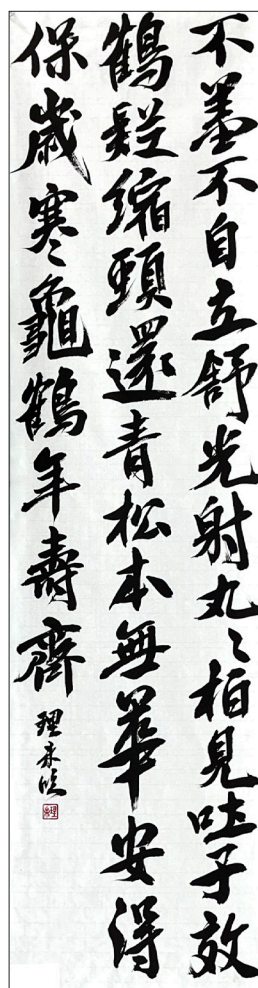 不羞不自立舒光射丸〻柏見吐子效
鶴疑縮頸還青松本無華安得
保歲寒龜鶴年壽齊